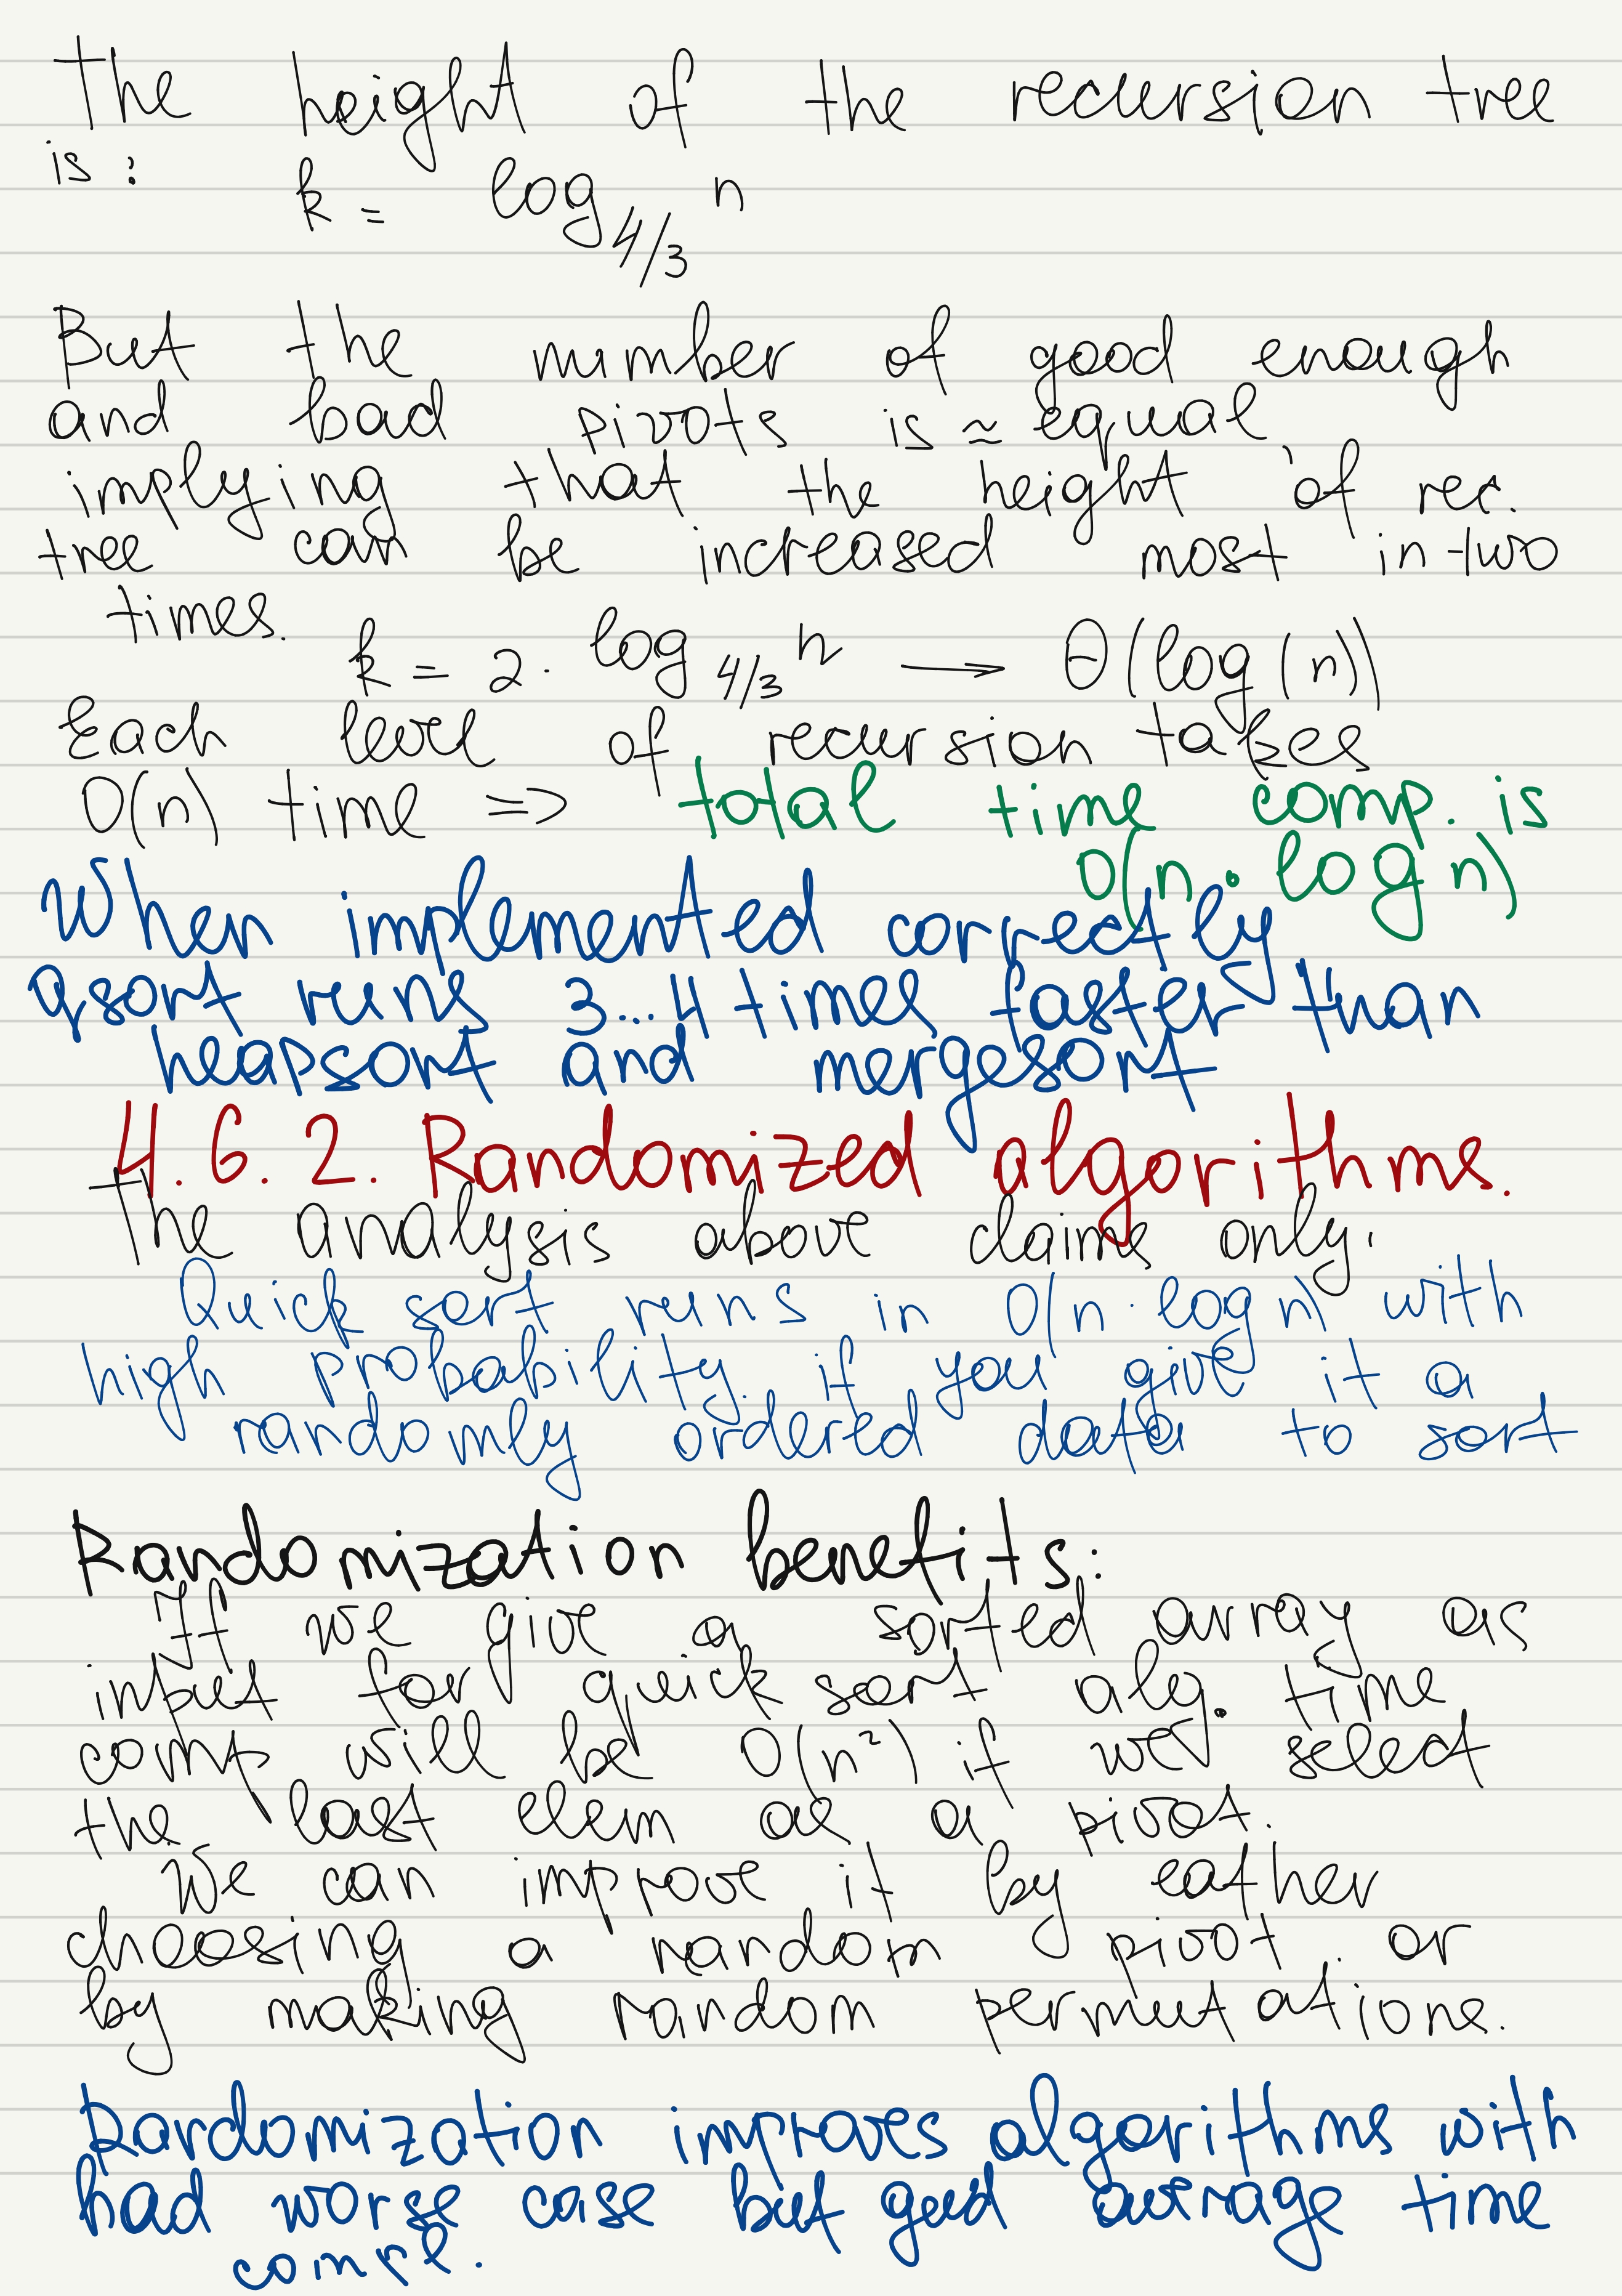 The height of the recursion tree
is: k = log 4/3 n
But the number of good enough
and bad pivots is ≈ equal
implying that the height of rec.
tree can be increased most in two
times.
k = 2 · log 4/3 n → Θ(log(n))
Each level of recursion takes
O(n) time => total time comp. is
O(n · log n)
When implemented correctly
qsort runs 3...4 times faster than
heapsort and mergesort
4.6.2. Randomized algorithms.
The analysis above claims only:
Quick sort runs in O(n · log n) with
high probability if you give it a
randomly ordered data to sort
Randomization benefits:
If we give a sorted array as
input for quick sort alg. time
comp will be O(n²) if we select
the last elem as a pivot.
We can improve it by eather
choosing a random pivot or
by making random permutations.
Randomization improves algorithms with
bad worse case but good average time
compl.